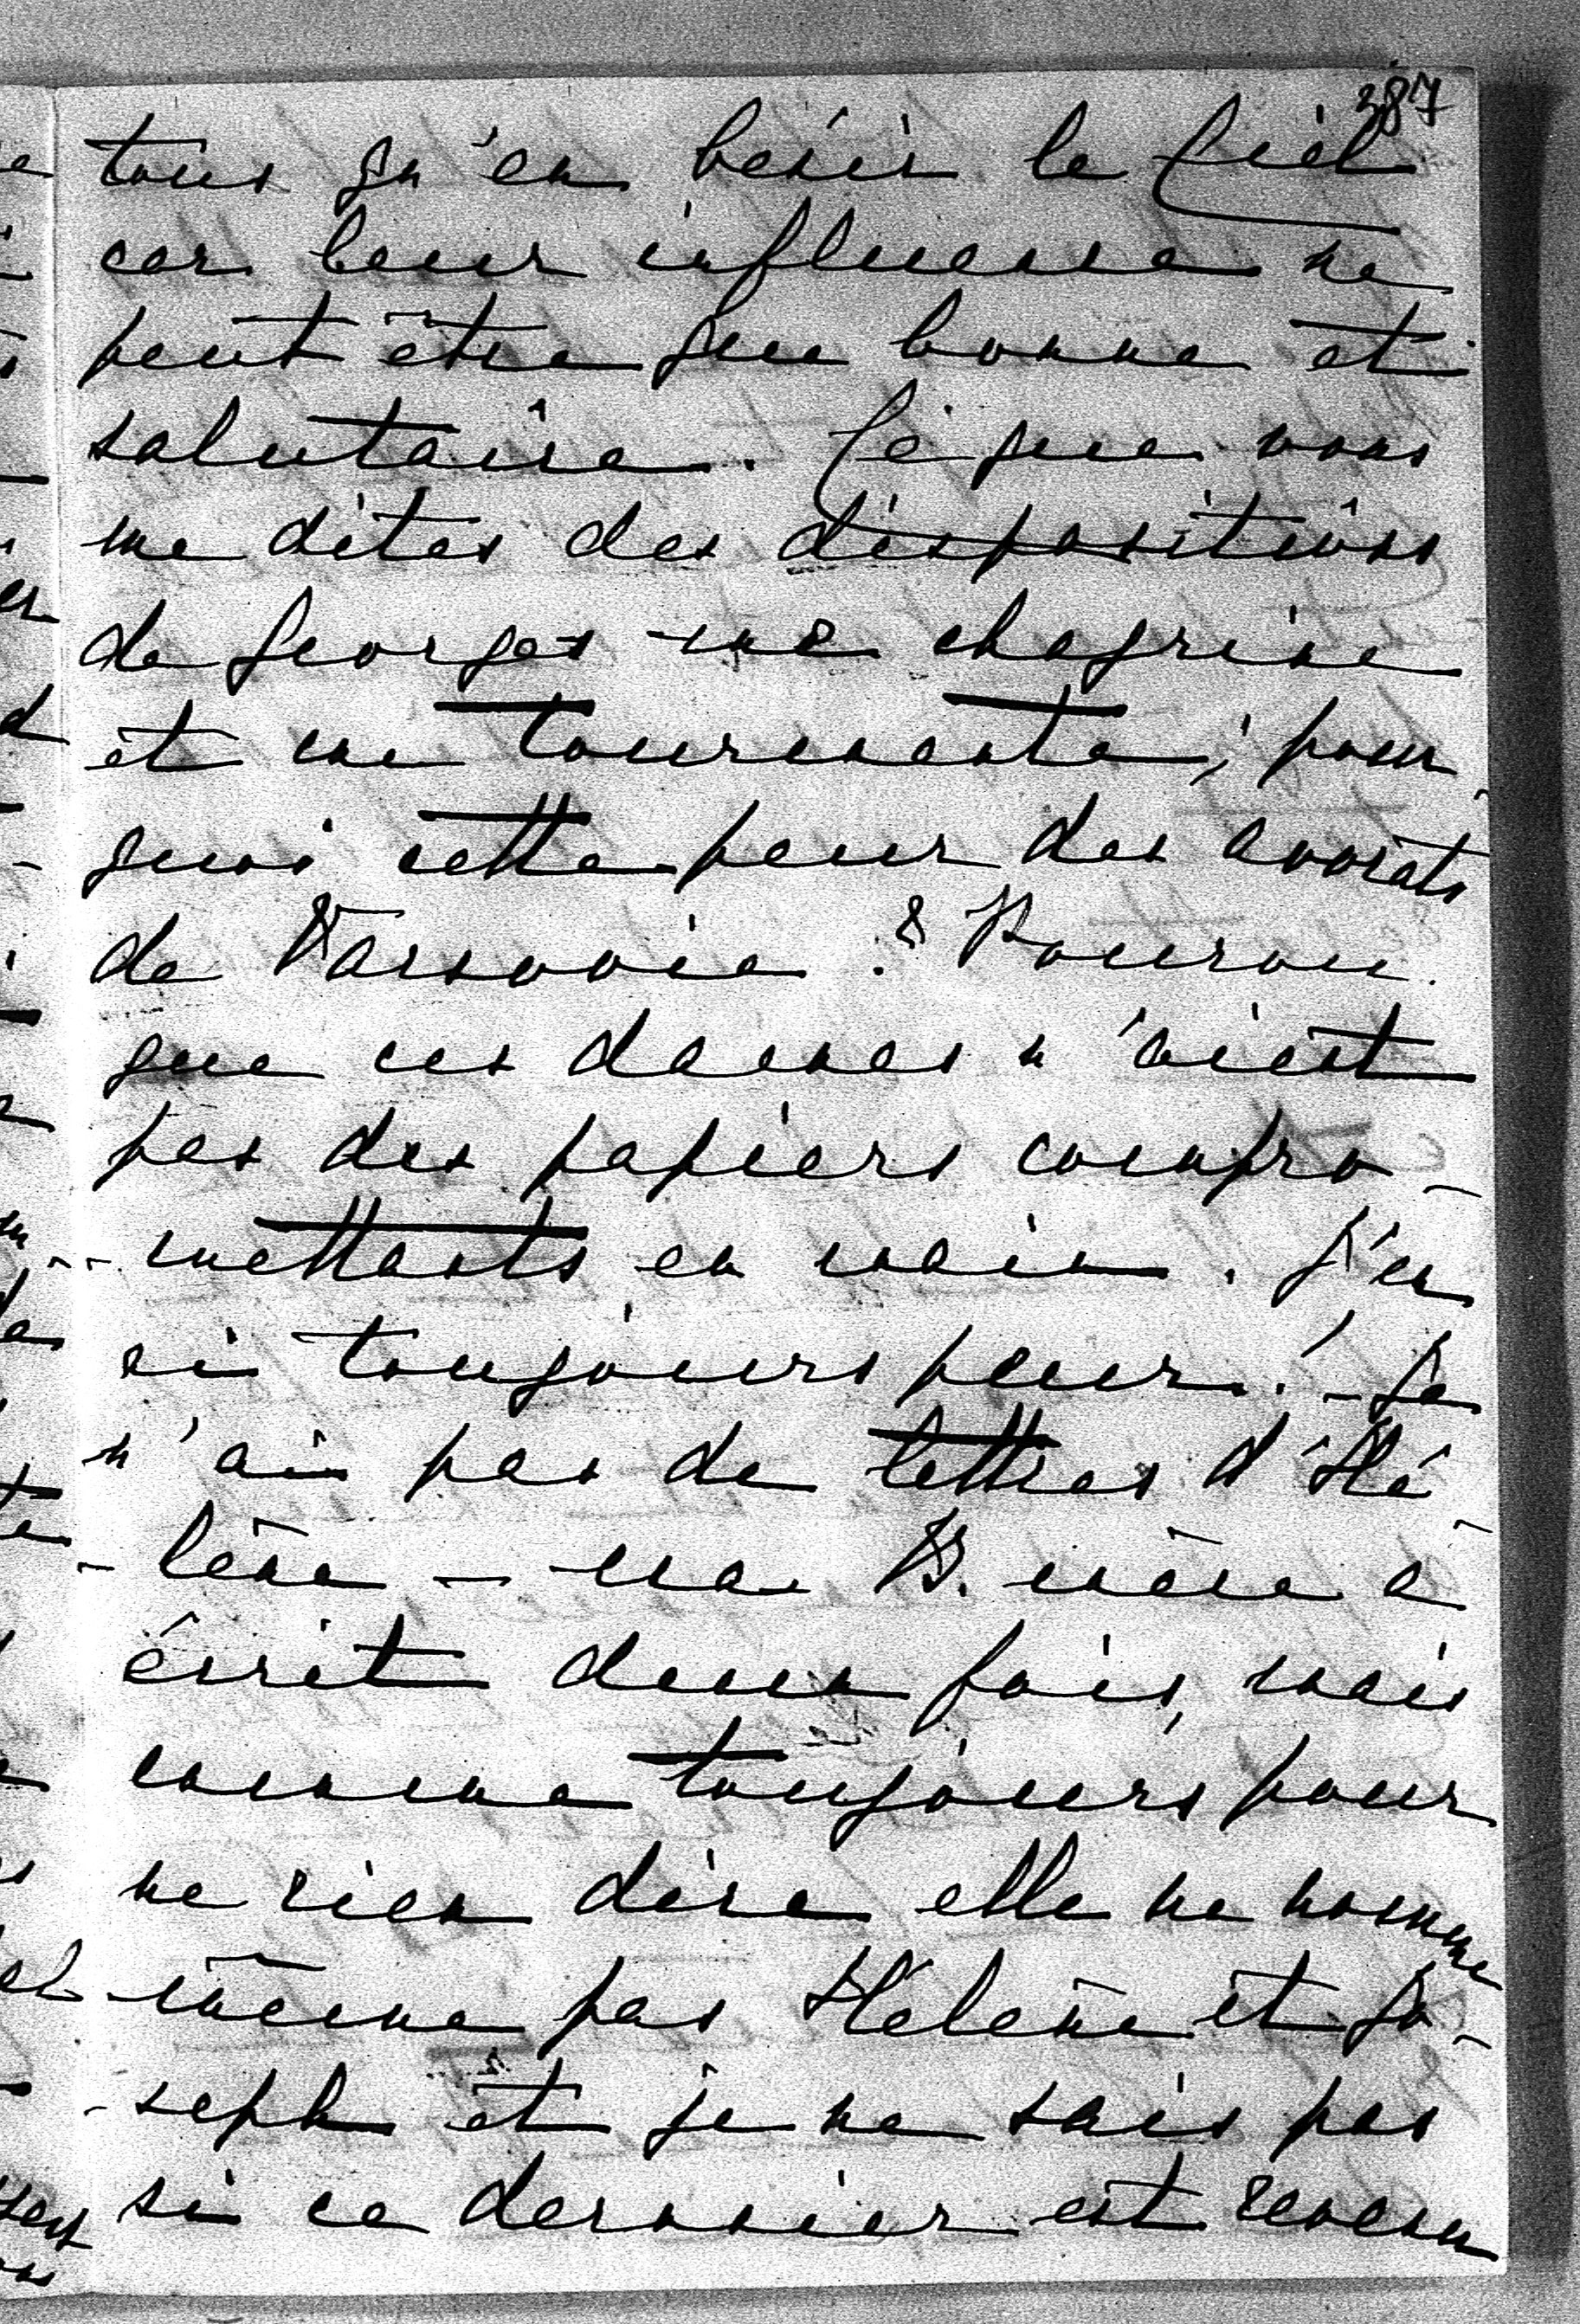 387
tous qu'en bénir le Ciel
car leur influence ne
peut être que bonne et
salutaire. Ce que vous
me dites des dispositions
de Georges me chagrine
et me tourmente; pour
quoi cette peur des avocats
de Varsovie? Pourvu
que ces dames n'aient
pas des papiers compro-
-mettants en main. J'en
ai toujours peur! - Je
n'ai pas de lettres d'Hé-
-lène - ma B. mère a
écrit deux fois, mais
comme toujours pour
ne rien dire elle ne nomme
même pas Hélène et Jo-
-seph et je ne sais pas
si ce dernier est revenu